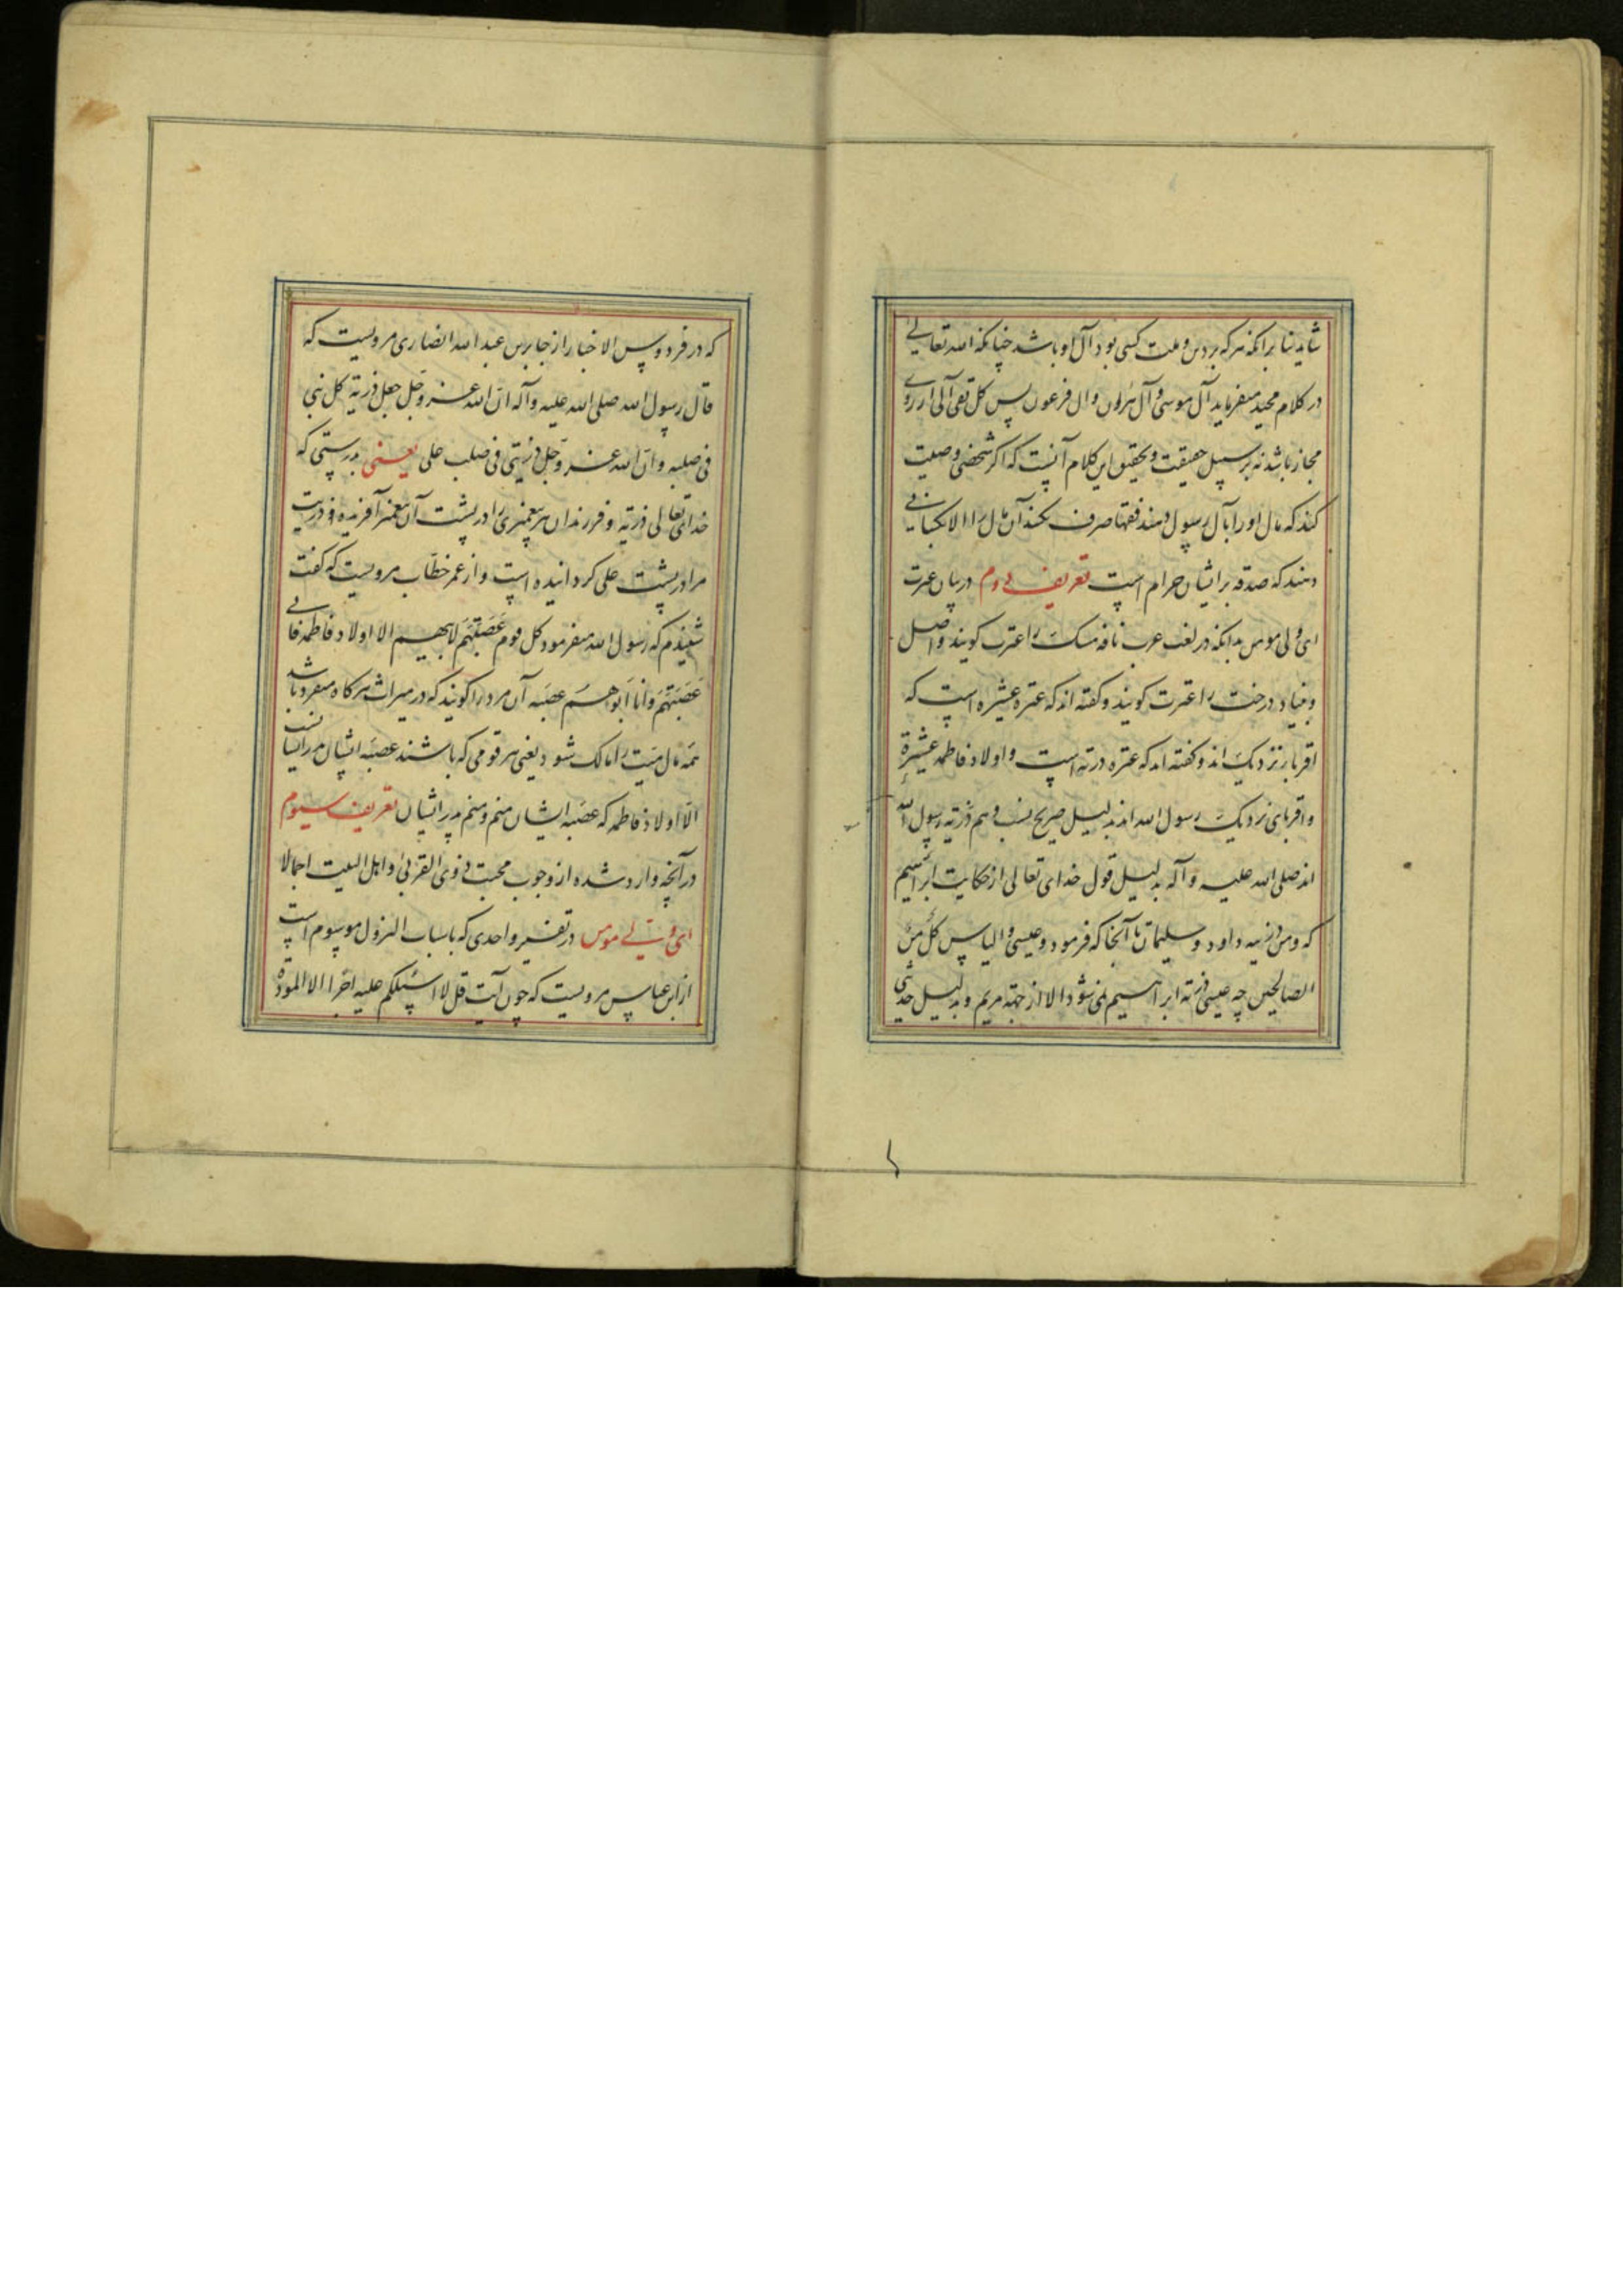 شاید بنا برانکه هرکه بر دین و ملت کسی بود آل او باشد چنانکه الله تعالی
در کلام مجید میفرماید آل موسی و آل هرون و ال فرعون پس کل تقی آلی از روی
مجاز باشد نه بر سبیل حقیقت و تحقیق این کلام آنست که اکر شخصی وصیت
کند که مال او را بآل رسول دهند فقها صرف نکنند آن مال را الا بکسانی
دهند که صدقه بر ایشان حرام است تعریف دوم در بیان عترت
ای ولی مومن بدانکه در لغت عرب نافه مسک را عترت کویند و اصل
و بنیاد درخت را عترت کویند و کفته اند که عتره عشیره است که
اقربا نزدیک اند و کفته اند که عتره ذریه است و اولاد فاطمه عشیرة
و اقربای نزدیک رسول الله اند بدلیل صریح نسب و هم ذریه رسول الله
اند صلی الله علیه و آله بدلیل قول خدای تعالی از حکایت ابراهیم
که و من ذریته داود و سلیمان تا آنجا که فرمود و عیسی و الیاس کل من
الصالحین چه عیسی ذریه ابراهیم نمی شود الا از جهة مریم و بدلیل حدیثی
که در فردوس الاخبار از جابر بن عبد الله انصاری مرویست که
قال رسول الله صلی الله علیه و آله ان الله عز و جل جعل ذریة کل نبی
فی صلبه و ان الله عز و جل ذریتی فی صلب علی یعنی بدرستی که
خدای تعالی ذریه و فرزندان هر پیغمبری را در پشت آن پیغمبر آفریده و ذریت
مرا در پشت علی کردانیده است و از عمر خطاب مرویست که کفت
شنیدم که رسول الله میفرمود کل قوم عصبتهم لابیهم الا اولاد فاطمه فانی
عصبتهم و انا ابوهم عصبه آن مرد را کویند که در میراث هرکاه منفرد باشد
همه مال میت را مالک شود یعنی هر قومی که باشند عصبه ایشان پدر ایشان نسب
الا اولاد فاطمه که عصبه ایشان منم و منم پدر ایشان تعریف سیوم
در آنچه وارد شده از وجوب محبت ذوی القربی و اهل البیت اجمالا
ای ولی مومن در تفسیر واحدی که باسباب النزول موسوم است
از ابن عباس مرویست که چون آیت قل لا اسئلکم علیه اجرا الا المودة